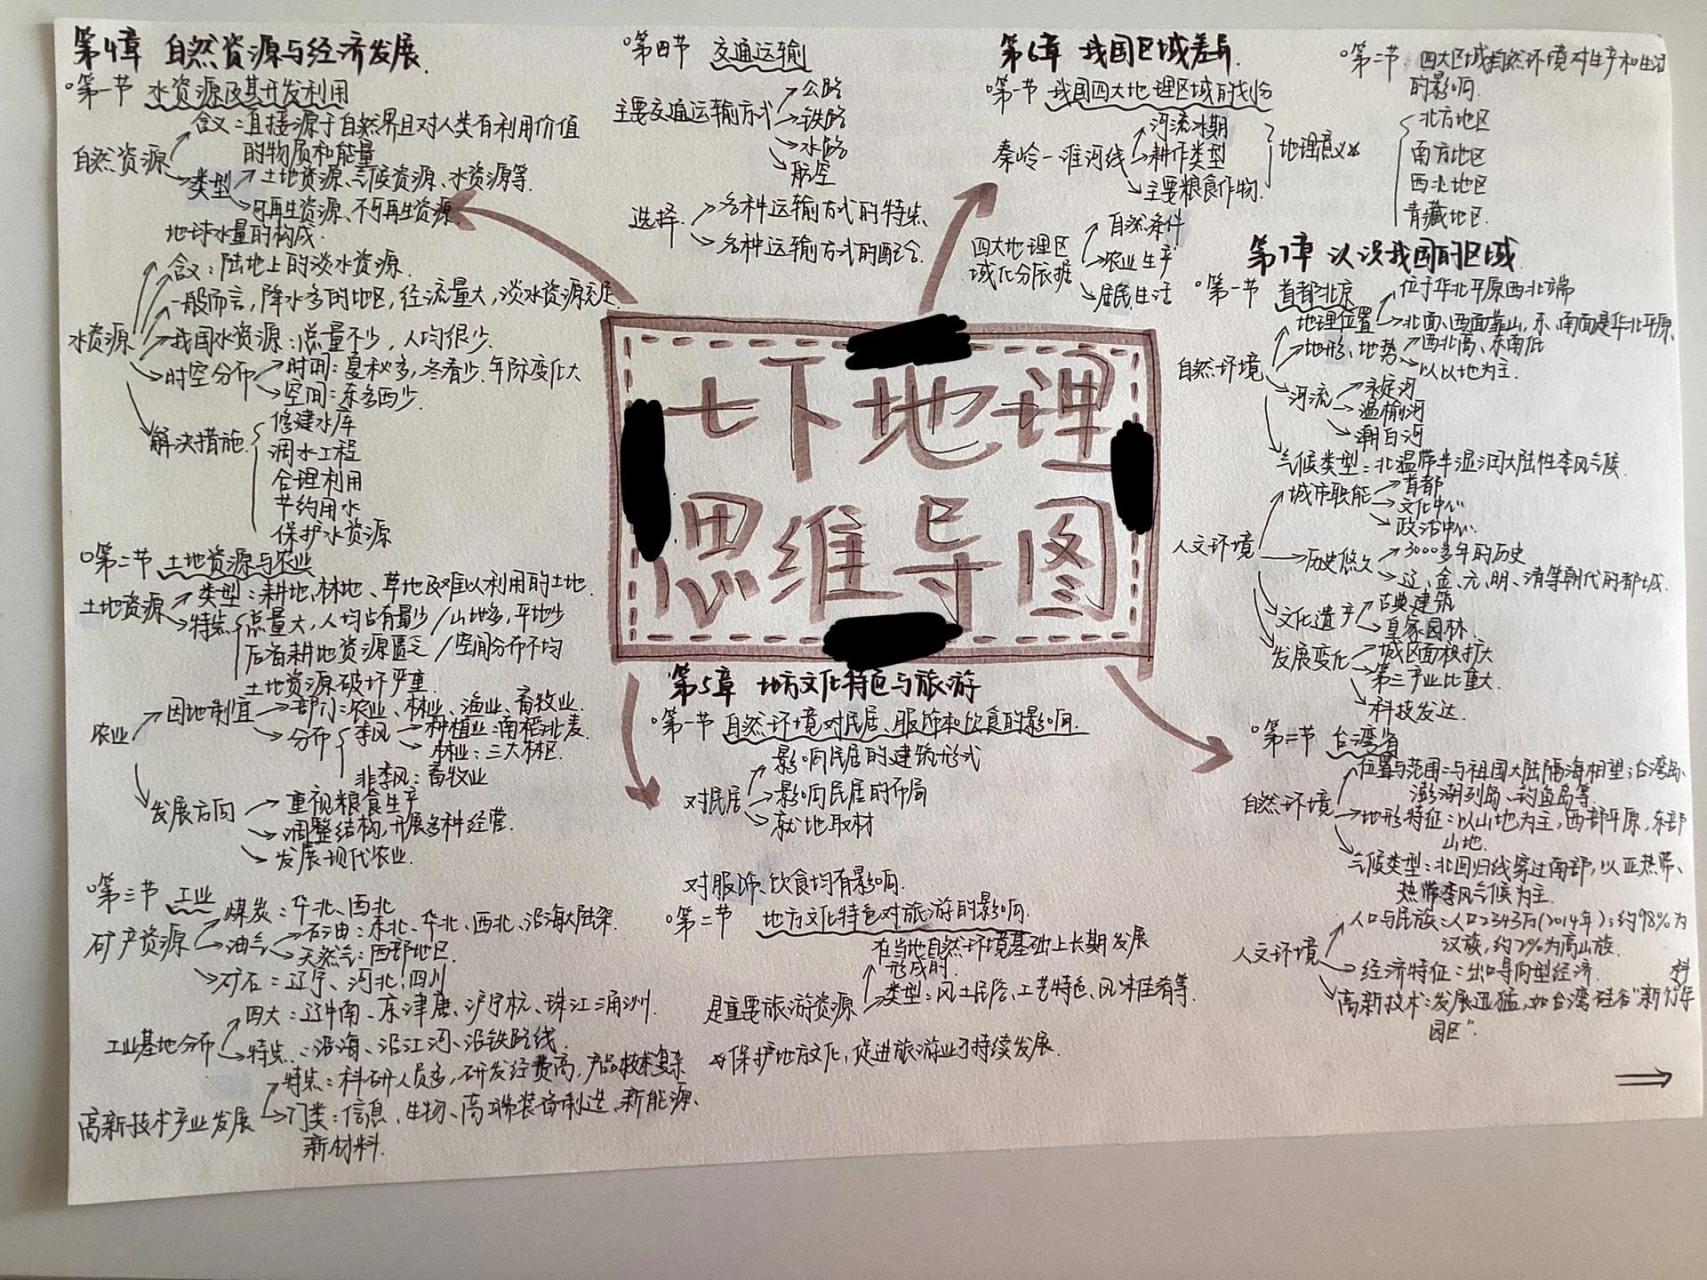 第4章 自然资源与经济发展.
第一节 水资源及其开发利用
自然资源
含义:直接源于自然界且对人类有利用价值
的物质和能量
类型
土地资源、气候资源、水资源等.
可再生资源、不可再生资源.
地球水量的构成.
水资源
含义:陆地上的淡水资源.
一般而言,降水多的地区,经流量大,淡水资源充足
我国水资源:总量不少,人均很少.
时空分布
时间:夏秋多,冬春少.年际变化大
空间:东多西少.
解决措施
修建水库
调水工程
合理利用
节约用水
保护水资源
第二节 土地资源与农业
土地资源
类型:耕地、林地、草地及难以利用的土地.
特点
总量大,人均占有量少/山地多,平地少
后备耕地资源匮乏/空间分布不均
土地资源破坏严重.
农业
因地制宜
部门:农业、林业、渔业、畜牧业.
分布
季风
种植业:南稻北麦
林业:三大林区.
非季风:畜牧业
发展方向
重视粮食生产
调整结构,开展多种经营.
发展现代农业.
第三节 工业
矿产资源
煤炭:华北、西北
油气
石油:东北、华北、西北、沿海大陆架
天然气:西部地区.
矿石:辽宁、河北、四川
工业基地分布
四大:辽中南、京津唐、沪宁杭、珠江三角洲.
特点:沿海、沿江河、沿铁路线.
高新技术产业发展
特点:科研人员多,研发经费高,产品技术复杂
门类:信息、生物、高端装备制造、新能源、
新材料.
第四节 交通运输
主要交通运输方式
公路
铁路
水路
航空
选择
各种运输方式的特点
各种运输方式的配合.
七下地理
思维导图
第5章 地方文化特色与旅游
第一节 自然环境对民居、服饰和饮食的影响.
对民居
影响民居的建筑形式
影响民居的布局
就地取材
对服饰、饮食均有影响.
第二节 地方文化特色对旅游的影响.
是重要旅游资源
在当地自然环境基础上长期发展
形成的.
类型:风土民俗、工艺特色、风味佳肴等.
保护地方文化,促进旅游业可持续发展.
第6章 我国区域差异.
第一节 我国四大地理区域的划分
秦岭-淮河线
河流冰期
耕作类型
主要粮食作物.
地理意义
四大地理区
域化分依据
自然条件
农业生产
居民生活
第二节 四大区域自然环境对生产和生活
的影响.
北方地区
南方地区
西北地区
青藏地区.
第7章 认识我国的区域
第一节 首都北京
自然环境
地理位置
位于华北平原西北端
北面、西面靠山,东、南面是华北平原.
地形、地势
西北高、东南低
以山地为主.
河流
永定河
温榆河
潮白河
气候类型:北温带半湿润大陆性季风气候.
人文环境
城市职能
首都
文化中心
政治中心.
历史悠久
3000多年的历史
辽、金、元、明、清等朝代的都城.
文化遗产
古典建筑
皇家园林.
发展变化
城区面积扩大
第三产业比重大.
科技发达.
第二节 台湾省
自然环境
位置与范围:与祖国大陆隔海相望;台湾岛、
澎湖列岛、钓鱼岛等
地形特征:以山地为主,西部平原,东部
山地.
气候类型:北回归线穿过南部,以亚热带、
热带季风气候为主.
人文环境
人口与民族:人口2343万(2014年);约98%为
汉族,约2%为高山族.
经济特征:出口导向型经济.
高新技术:发展迅猛,如台湾硅谷"新竹科
园区".